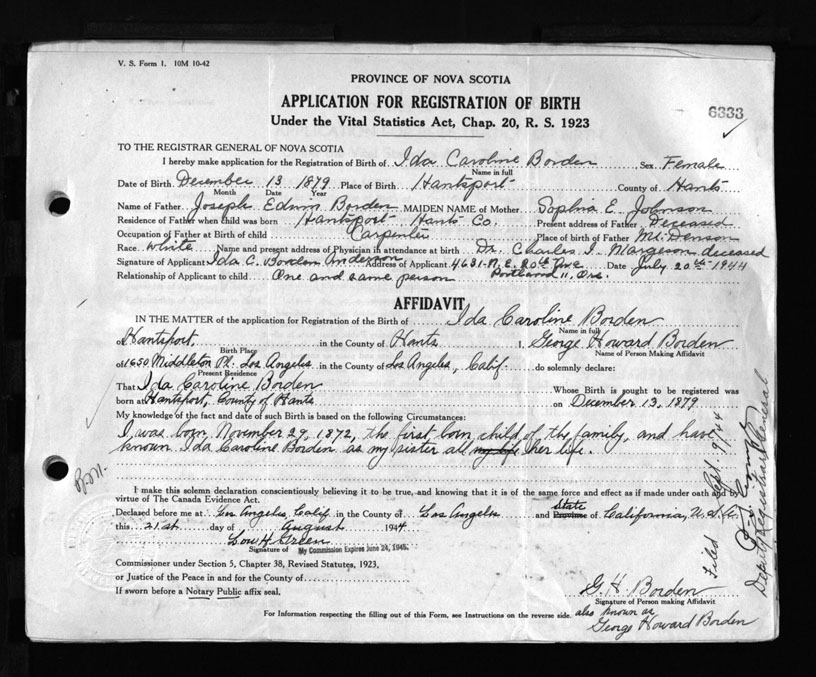 V. S. Form 1. 10M 10-42
PROVINCE OF NOVA SCOTIA
APPLICATION FOR REGISTRATION OF BIRTH
6333
Under the Vital Statistics Act, Chap. 20, R. S. 1923
TO THE REGISTRAR GENERAL OF NOVA SCOTIA
I hereby make application for the Registration of Birth of Ida Caroline Borden Sex Female
Name in full
Date of Birth December 13 1879 Place of Birth Hantsport County of Hants
Month Date Year
Name of Father Joseph Edwin Borden MAIDEN NAME of Mother Sophia E. Johnson
Residence of Father when child was born Hantsport Hants Co. Present address of Father Deceased
Occupation of Father at Birth of child Carpenter Place of birth of Father Mt. Denson
Race White Name and present address of Physician in attendance at birth Dr. Charles I. Margeson deceased
Signature of Applicant Ida C. Borden Anderson Address of Applicant 4631-N.E. 20th Ave Date July 20th-1944
Relationship of Applicant to child One and same person Portland 11, Ore.
AFFIDAVIT
IN THE MATTER of the application for Registration of the Birth of Ida Caroline Borden
Name in full
of Hantsport, in the County of Hants I, George Howard Borden
Birth Place Name of Person Making Affidavit
of 1650 Middleton Pl. Los Angeles in the County of Los Angeles, Calif. do solemnly declare:
Present Residence
That Ida Caroline Borden Whose Birth is sought to be registered was
born at Hantsport, County of Hants on December 13, 1879
My knowledge of the fact and date of such Birth is based on the following Circumstances:
I was born, November 29, 1872, the first born child of the family, and have
known Ida Caroline Borden as my sister all my life her life.
I make this solemn declaration conscientiously believing it to be true, and knowing that it is of the same force and effect as if made under oath and by
virtue of The Canada Evidence Act.
State
Declared before me at Los Angeles, Calif in the County of Los Angeles and Province of California, U.S.A.
this 21st day of August 1944
Lou H. Green
Signature of My Commission Expires June 24, 1945.
Commissioner under Section 5, Chapter 38, Revised Statutes, 1923,
or Justice of the Peace in and for the County of
If sworn before a Notary Public affix seal.
G. H. Borden
Signature of Person making Affidavit
For Information respecting the filling out of this Form, see Instructions on the reverse side.
also known as
George Howard Borden
Filed Sept. 9/44
Deputy Registrar General